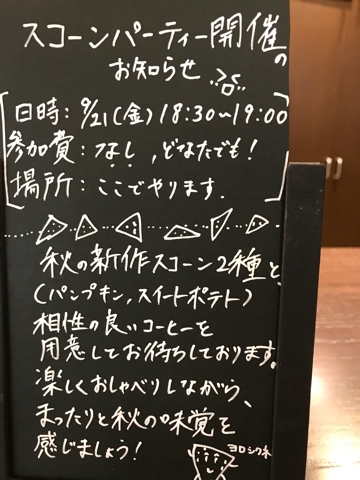 スコーンパーティー開催の
お知らせ
日時：9/21(金)18:30〜19:00
参加費：なし、どなたでも！
場所：ここでやります。
秋の新作スコーン2種と、
(パンプキン、スイートポテト)
相性の良いコーヒーを
用意してお待ちしております。
楽しくおしゃべりしながら、
まったりと秋の味覚を
感じましょう！
ヨロシクネ